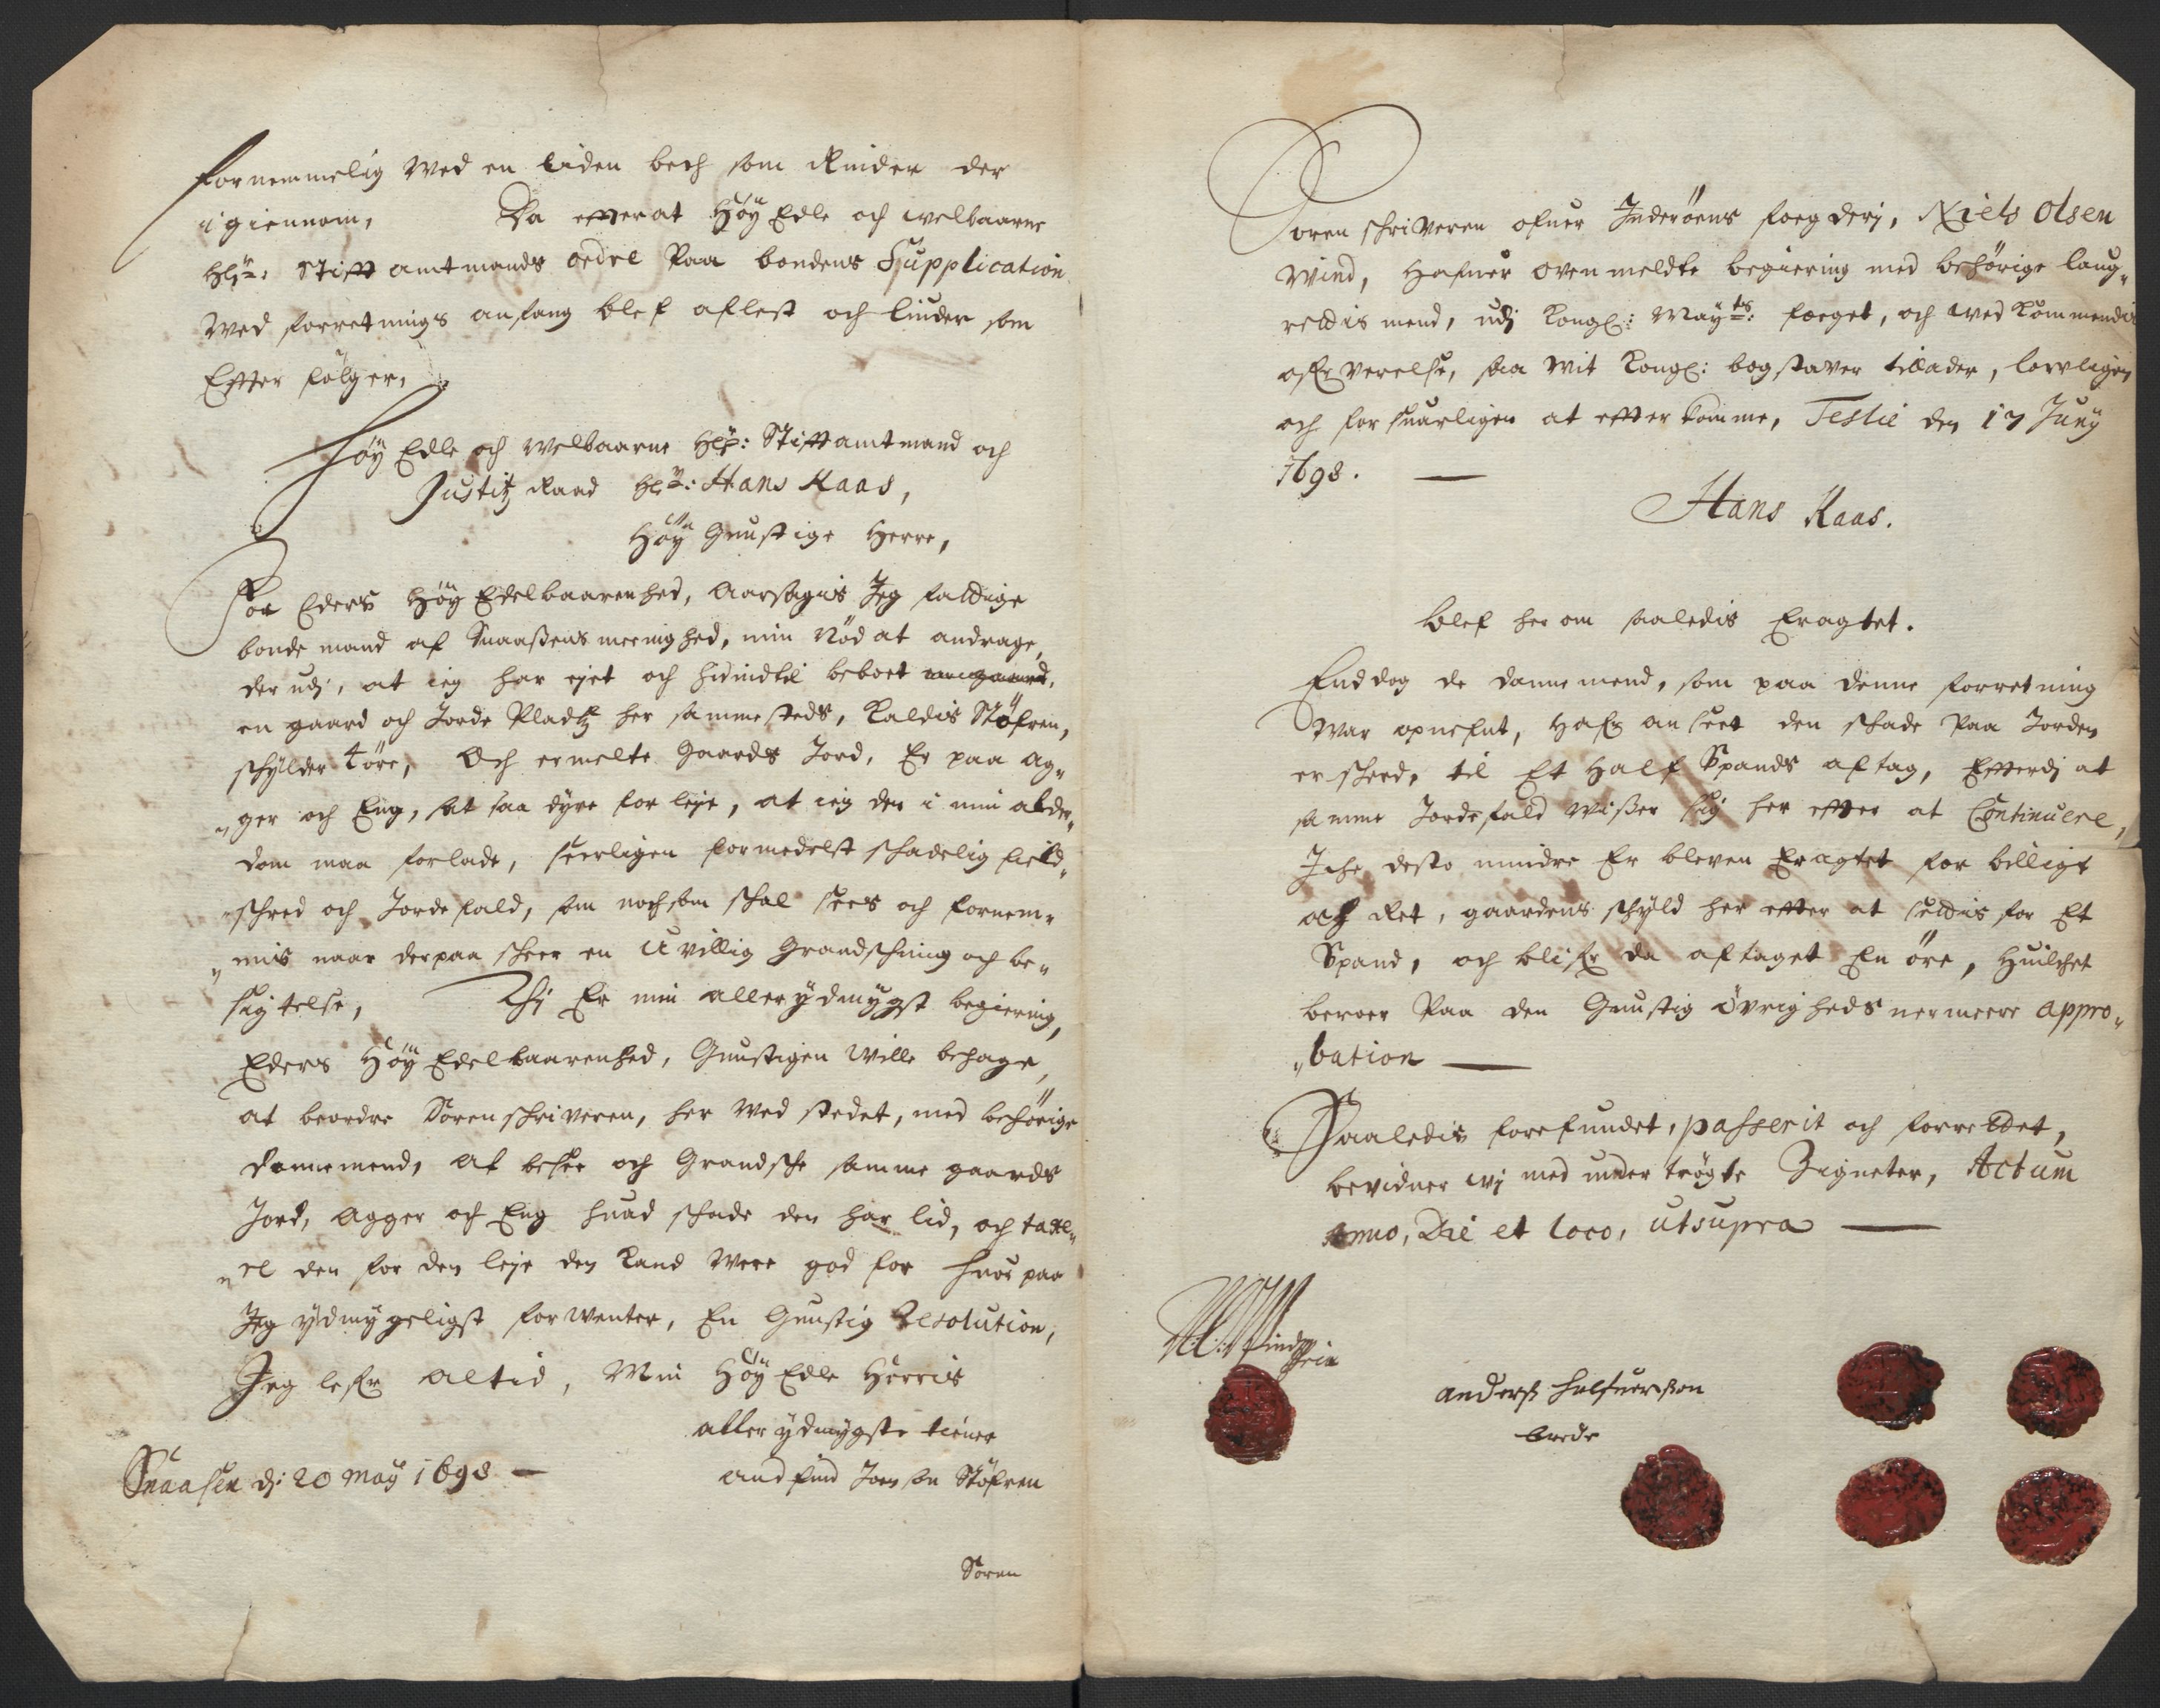 fornemmelig wed en liden bech som Rinder der
igiennom, Da efterat Høy Edle och welbaarne
Hr: Stifft amtmands ordre Paa bondens Supplication
wed forretnings anfang blef aflest och liuder som
Effter følger,
Høy Edle och welbaarne Hr: Stifftamtmand och
Justitz Raad Hr: Hans Kaas,
Høy Gunstige Herre,
For Eders Høy Edelbaarenhed, aarsagis Jeg fattige
bonde mand af Snaaßens meenighed, min Nød at andrage,
der udj, at ieg har ejet och hidindtil beboet
en gaard och Jorde Pladtz her sammesteds, kaldis Støfren,
schylder 4 øre, Och ermelte Gaards Jord, Er paa Ag„
„ger och Eng, sat saa dyre for leje, at ieg den i min alder„
dom maa forlade, seerligen formedelst schadelig field„
„schred och Jordefald, som nochsom schal sees och fornem„
„mis naar derpaa scheer en Uvillig Grandschning och be„
sigtelse, Thj Er min allerydmygst begiering,
Eders Høy Edelbaarenhed, Gunstigen wille behage,
at beordre Sorenschriveren, her wed stedet, med behørige
dannemend, at besee och Grandsche samme gaards
Jord, Agger och Eng huad schade den har lid, och taxe„
„re den for den leje den kand were god for huor paa
Jeg ydmygeligst forwenter, En Gunstig Resolution,
Jeg lefr altid, Min Høy Edle Herris
allerydmygste tiener
Snaasen dj: 20 May 1698 — andfind Joensøn Støfren
Soren
Soren schriveren ofuer Inderøens fogderj, Niels Olsen
Wind, Hafuer ovenmeldte begiering med behørige laug„
rettis mend, udj Kongl: Mayts: foeget, och wedkommendis
ofrverelse, saa wit Kongl: bogstaver tillader, lovligen
och forsuarligen at effterkomme, Testie den 17 Juny
1698. —
Hans Kaas.
Blef her om saaledis Eragtet.
Enddog de dannemend, som paa denne forretning
war opnefnt, Hafr anseet den schade Paa Jorden
er scheed, til Et Half Spands aftag, Efterdj at
samme Jordefald wißer sig her effter at Continuere,
Iche desto mindre Er bleven Eragtet for billigt
och Ret, gaardens schyld her effter at settis for Et
Spand, och blifr da aftaget En øre, Huilchet
beroer Paa den Gunstig Øvrigheds nermeere appro„
„bation —
Saaledis forefundet, passerit och forrettet,
bevidner wj med under trøgte Zigneter, Actum
Anno, Die et loco, utsupra —
N: Wind
anderß halfuorßon
brede